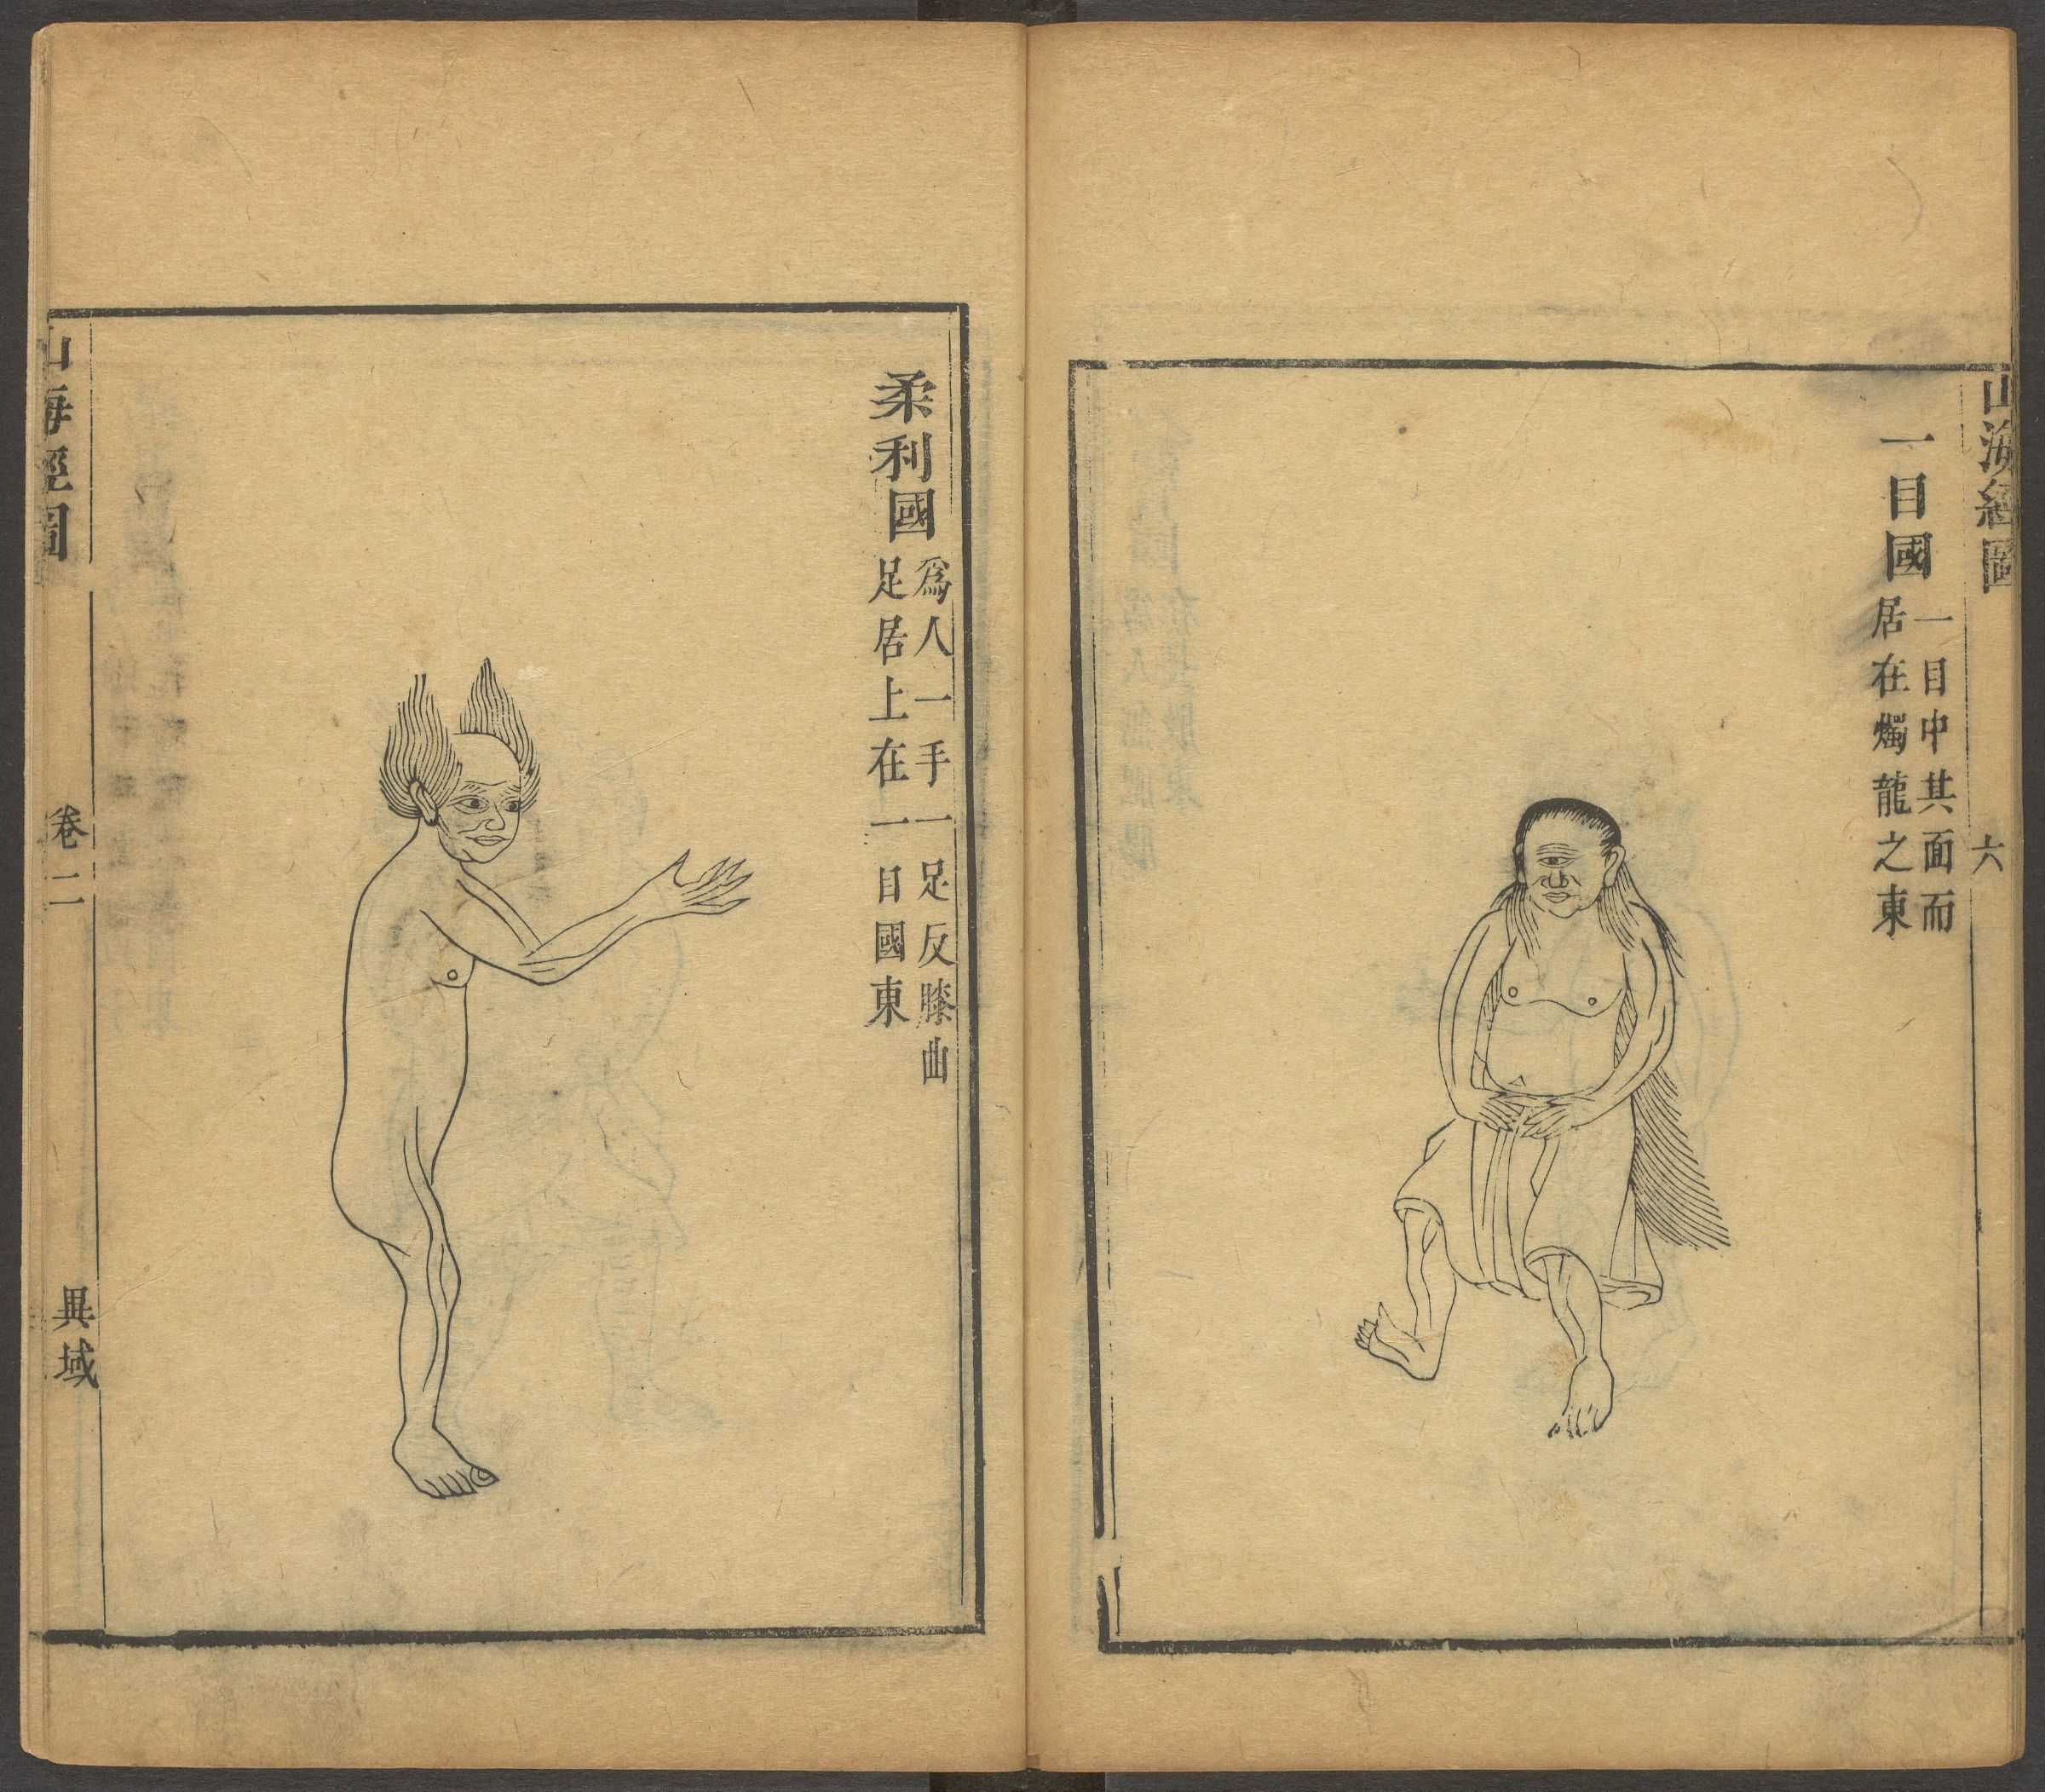 山海經圖
六
一目國
一目中其面而
居在燭龍之東
柔利國
爲人一手一足反膝曲
足居上在一目國東
山海經圖
卷二
異域